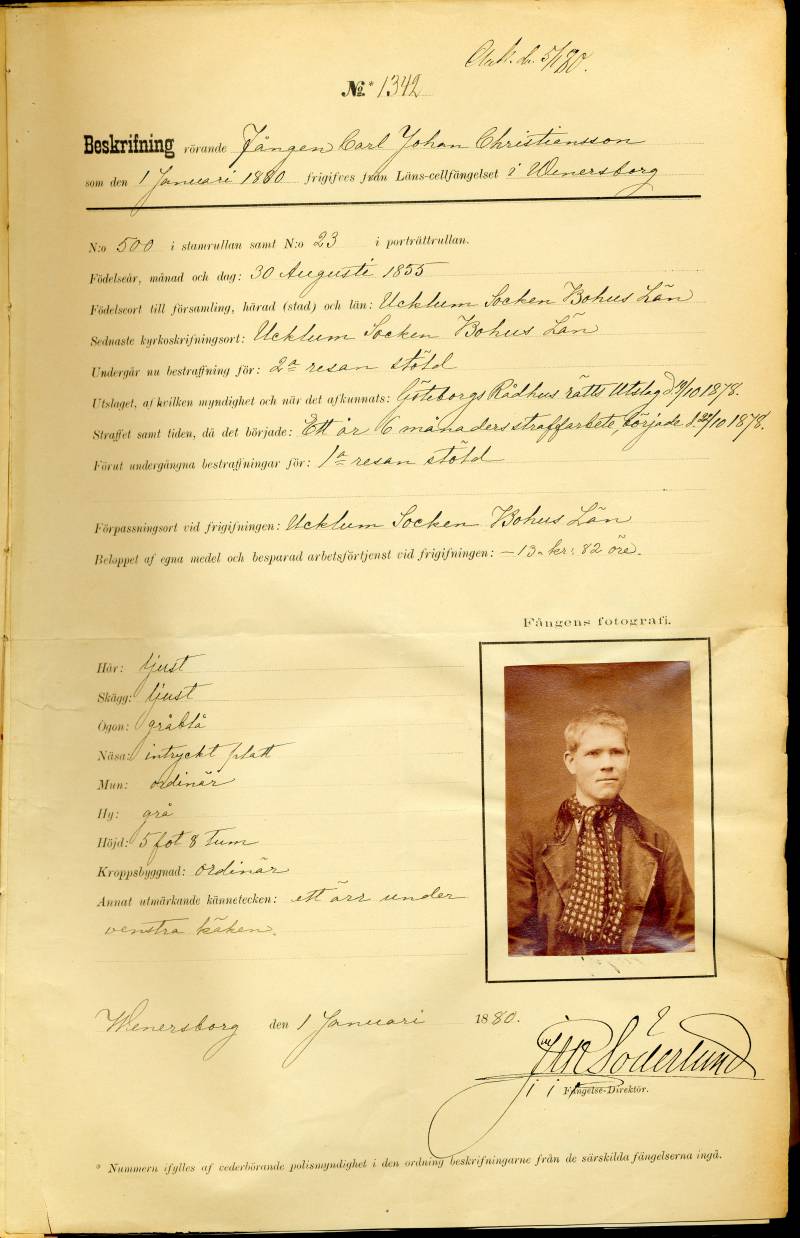 Ank. d. 5/1 80.
No.* 1342
Beskrifning rörande Fången Carl Johan Christiensson
som den 1 Januari 1880 frigifves från Läns-cellfängelset i Wenersborg
N:o 500 i stamrullan samt N:o 23 i porträttrullan.
Födelseår, månad och dag: 30 Augusti 1855
Födelseort till församling, härad (stad) och län: Ucklum Socken Bohus Län
Sednaste kyrkoskrifningsort: Ucklum Socken Bohus Län
Undergår nu bestraffning för: 2a resan stöld
Utslaget, af hvilken myndighet och när det afkunnats: Göteborgs Rådhus rätts Utslag d. 19/10 1878.
Straffet samt tiden, då det började: Ett år 6 månaders straffarbete, började d. 22/10 1878.
Förut undergångna bestraffningar för: 1a resan stöld
Förpassningsort vid frigifningen: Ucklum Socken Bohus Län
Beloppet af egna medel och besparad arbetsförtjenst vid frigifningen: — 13 kr: 82 öre.
Fångens fotografi.
Hår: ljust
Skägg: ljust
Ögon: gråblå
Näsa: intryckt platt
Mun: ordinär
Hy: grå
Höjd: 5 fot 8 tum
Kroppsbyggnad: ordinär
Annat utmärkande kännetecken: ett ärr under
venstra käken.
Wenersborg den 1 Januari 1880.
Söderlund
Fängelse-Direktör.
* Nummern ifylles af vederbörande polismyndighet i den ordning beskrifningarne från de särskilda fängelserna ingå.